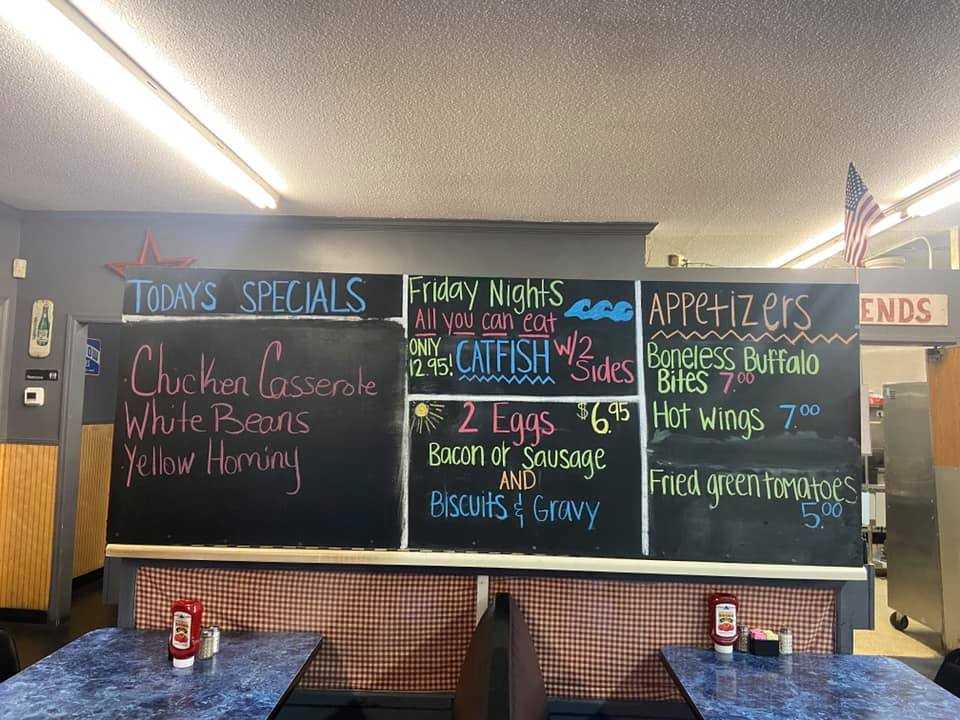 TODAYS SPECIALS
Chicken Casserole
White Beans
Yellow Hominy
Friday Nights
All you can eat
ONLY
12.95!
CATFISH
W/2
Sides
2 Eggs
$6.95
Bacon or sausage
AND
Biscuits & Gravy
APPETIZERS
Boneless Buffalo
Bites 7.00
Hot wings 7.00
Fried green tomatoes
5.00
ENDS